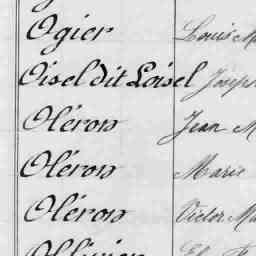 Ogier Louis
Oisel dit Loisel Joseph
Oléron Jean M
Oléron Marie
Oléron Victor Ma